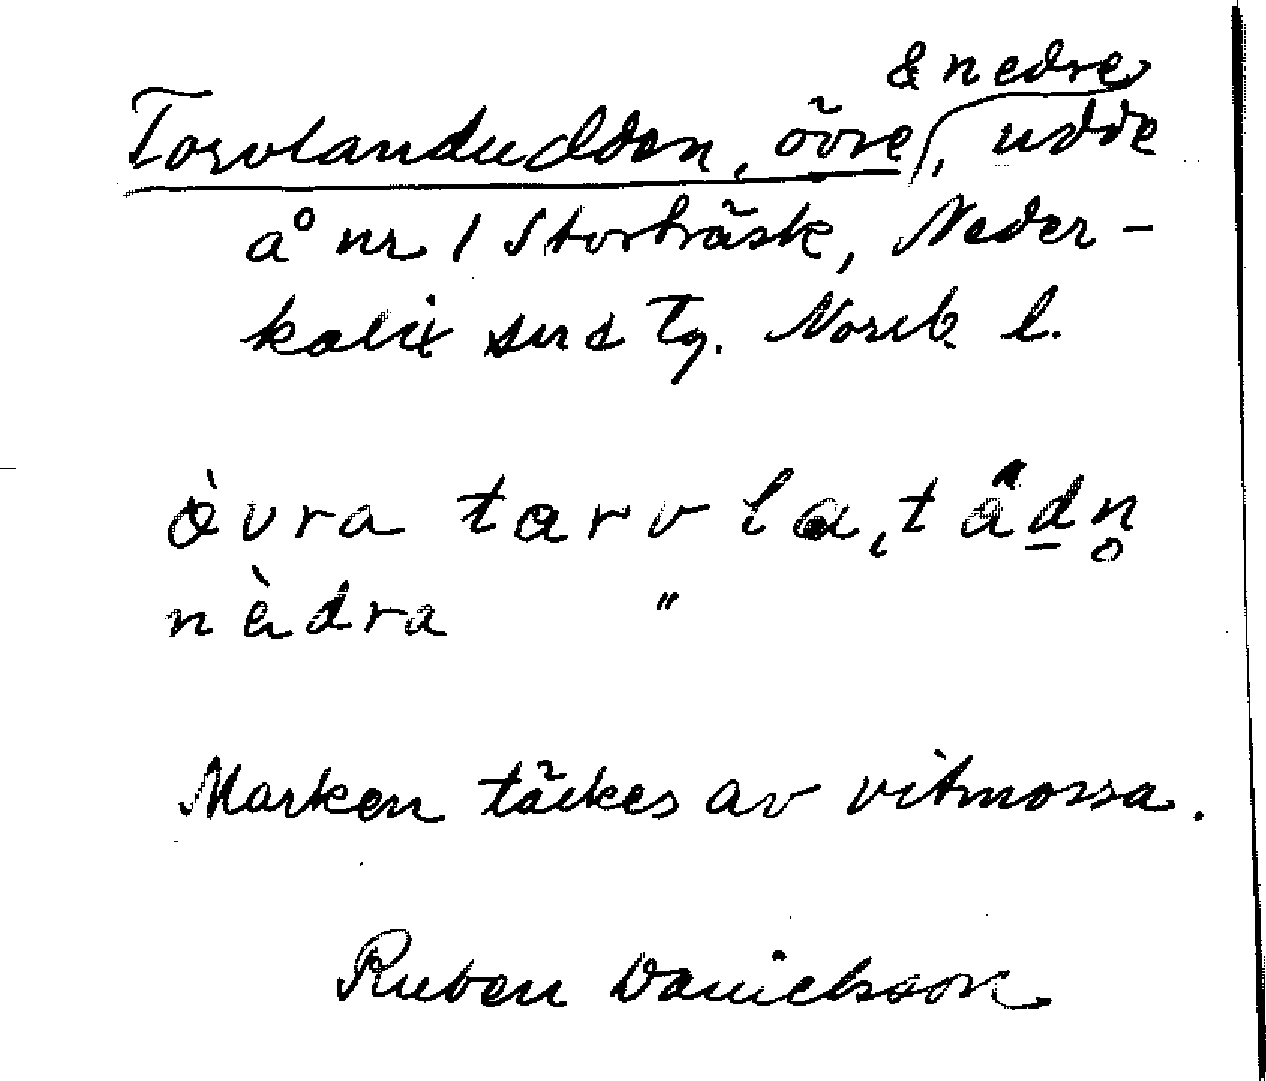 & nedre
Torvlandudden, övre, udde
å nr 1 Storträsk, Neder-
kalix sns Tg. Norrb l.
òvra tarvla,tådn
nèdra "
Marken täckes av vitmossa.
Ruben Danielsson